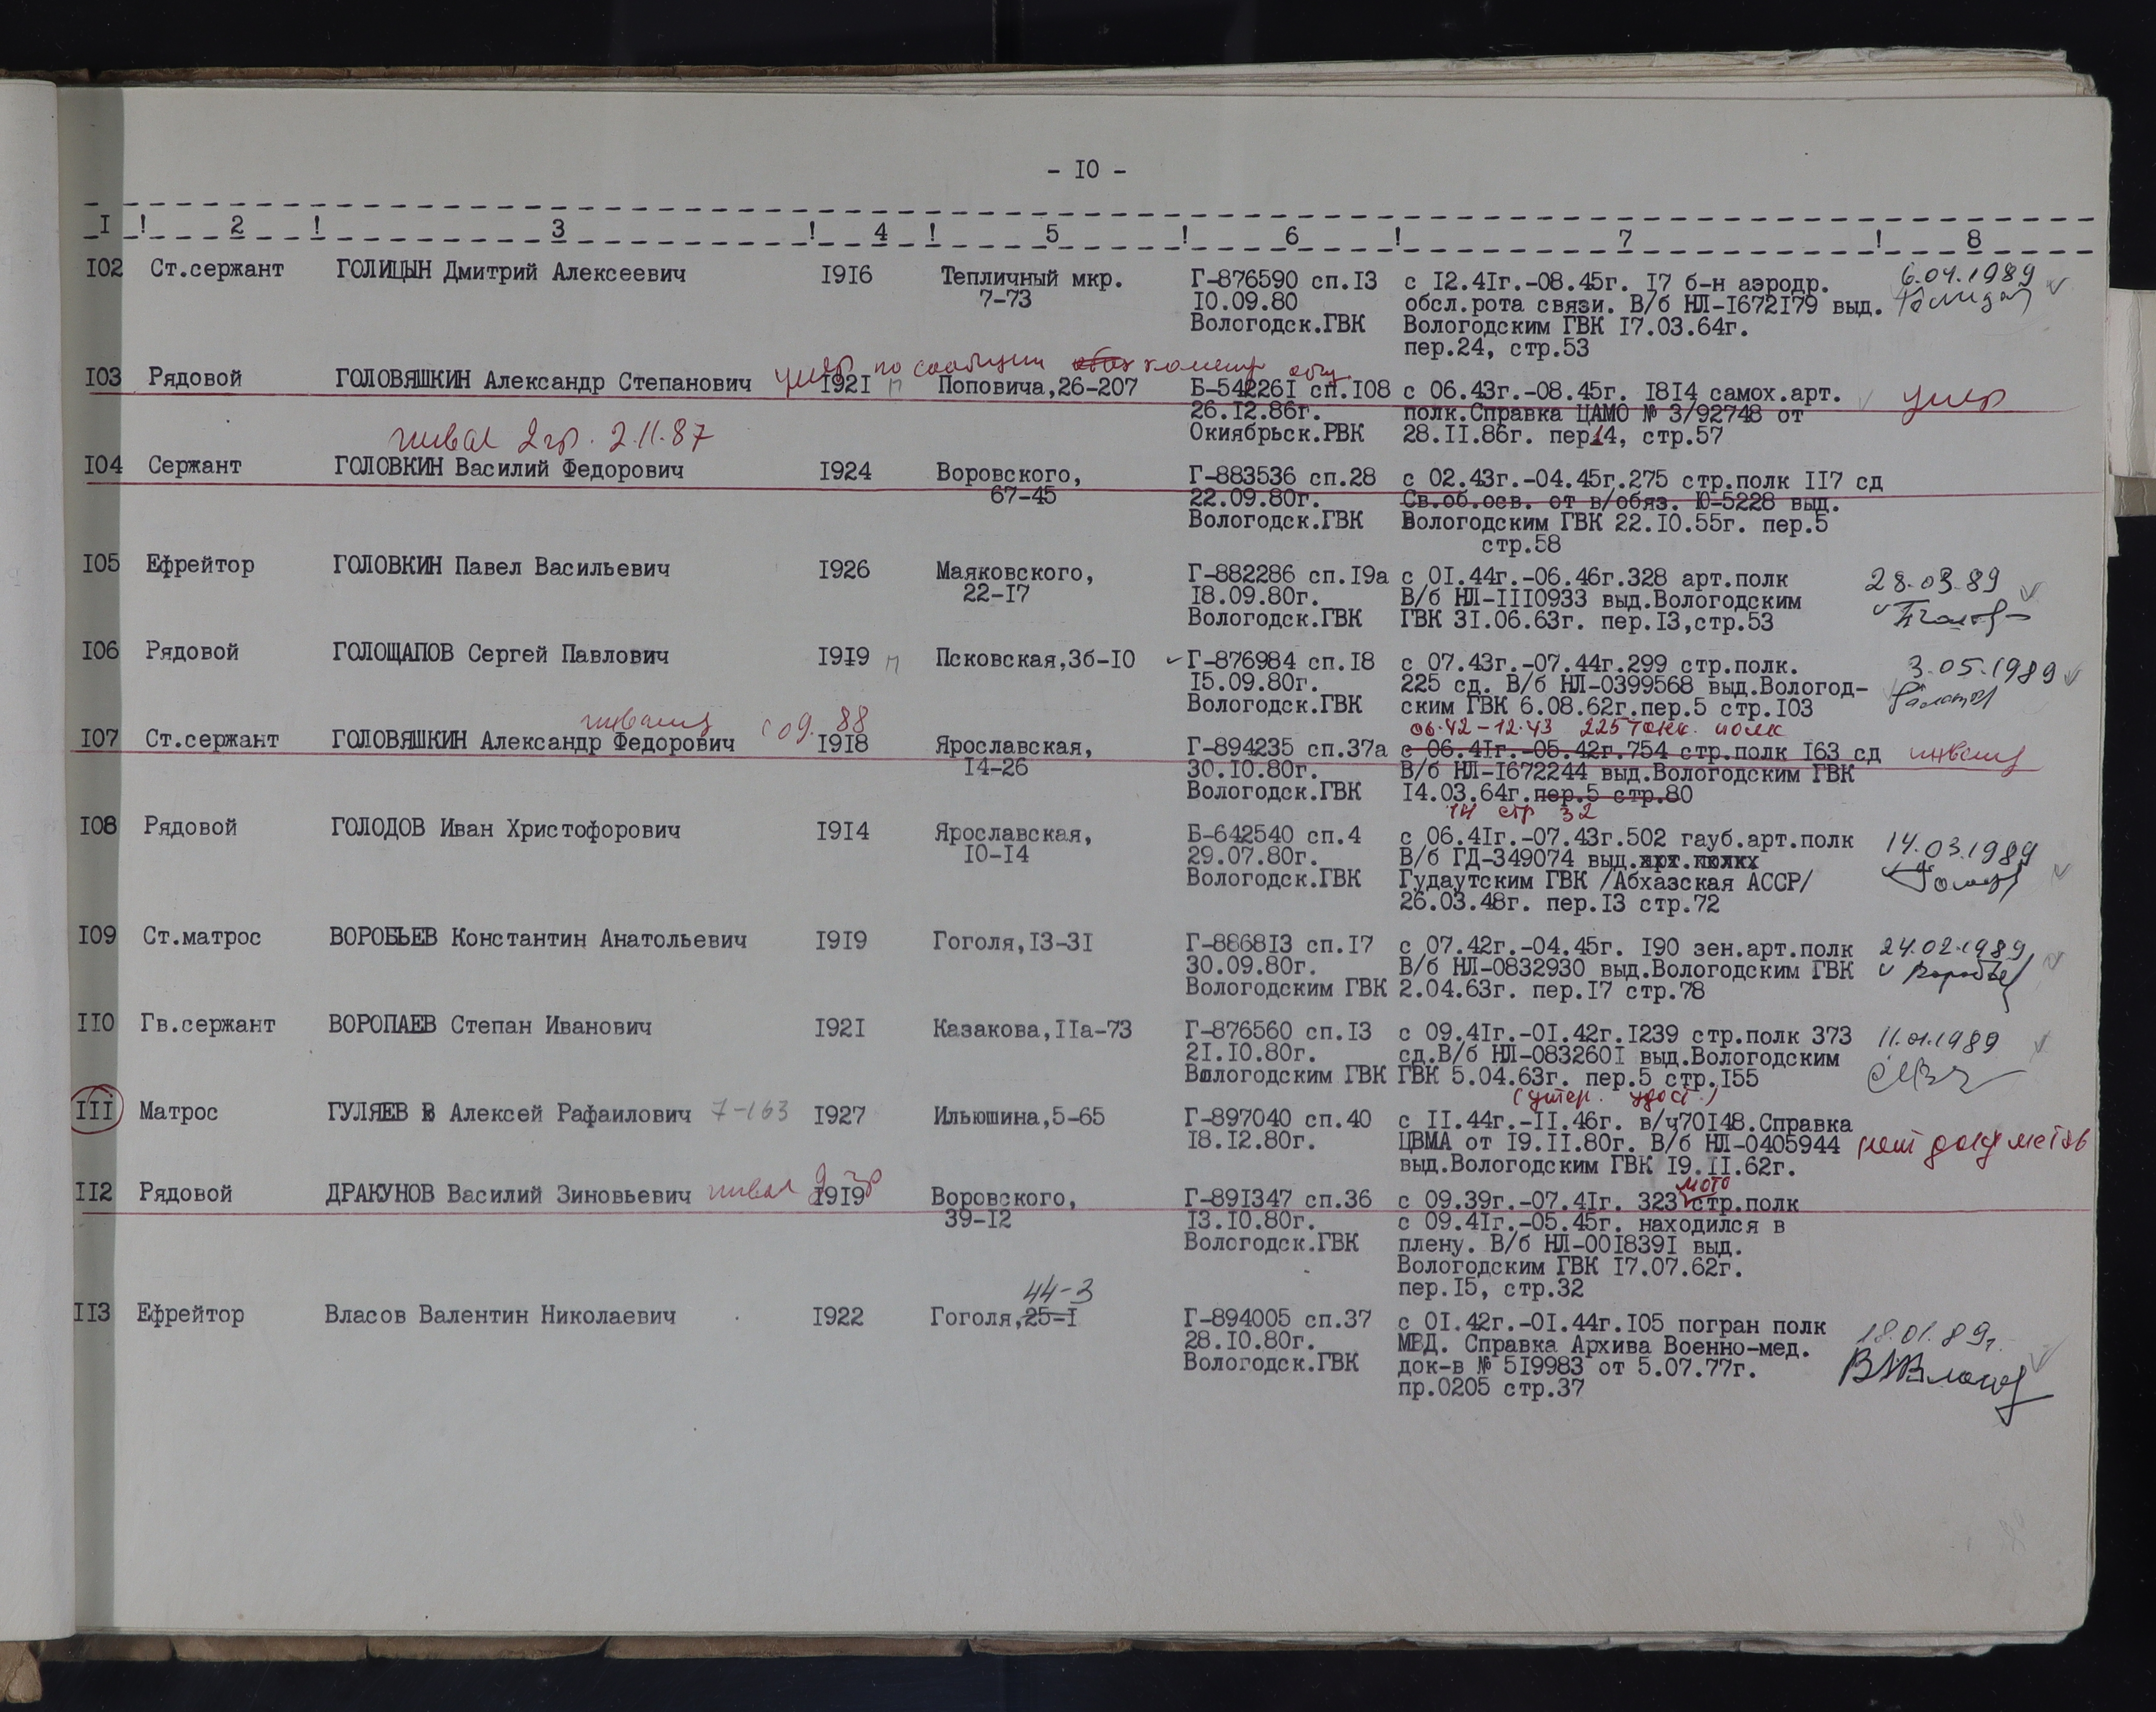 - I0 -
I ! 2 ! 3 ! 4 ! 5 ! 6 ! 7 ! 8
I02 Ст.сержант ГОЛИЦЫН Дмитрий Алексеевич I9I6 Тепличный мкр. Г-876590 сп.I3 с I2.4Iг.-08.45г. I7 б-н аэродр. 6.04.1989
7-73 I0.09.80 обсл.рота связи. В/б НЛ-I672I79 выд.
Вологодск.ГВК Вологодским ГВК I7.03.64г.
пер.24, стр.53
умер по
I03 Рядовой ГОЛОВЯШКИН Александр Степанович I92I п Поповича,26-207 Б-54226I сп.I08 с 06.43г.-08.45г. I8I4 самох.арт. умер
26.I2.86г. полк.Справка ЦАМО № 3/92748 от
Окиябрьск.РВК 28.II.86г. пер14, стр.57
инвал 2 гр. 2.11.87
I04 Сержант ГОЛОВКИН Василий Федорович I924 Воровского, Г-883536 сп.28 с 02.43г.-04.45г.275 стр.полк II7 сд
67-45 22.09.80г. Св.об.осв. от в/обяз. Ю-5228 выд.
Вологодск.ГВК Вологодским ГВК 22.I0.55г. пер.5
стр.58
I05 Ефрейтор ГОЛОВКИН Павел Васильевич I926 Маяковского, Г-882286 сп.I9а с 0I.44г.-06.46г.328 арт.полк 28.03.89
22-I7 I8.09.80г. В/б НЛ-III0933 выд.Вологодским
Вологодск.ГВК ГВК 3I.06.63г. пер.I3,стр.53
I06 Рядовой ГОЛОЩАПОВ Сергей Павлович I9I9 п Псковская,3б-I0 Г-876984 сп.I8 с 07.43г.-07.44г.299 стр.полк. 3.05.1989
I5.09.80г. 225 сд. В/б НЛ-0399568 выд.Вологод-
Вологодск.ГВК ским ГВК 6.08.62г.пер.5 стр.I03
инвалид с 09.88 06.42-12.43 225 танк. полк
I07 Ст.сержант ГОЛОВЯШКИН Александр Федорович I9I8 Ярославская, Г-894235 сп.37а с 06.4Iг.-05.42г.754 стр.полк I63 сд инвалид
I4-26 30.I0.80г. В/б НЛ-I672244 выд.Вологодским ГВК
Вологодск.ГВК I4.03.64г.пер.5 стр.80
14 стр 32
I08 Рядовой ГОЛОДОВ Иван Христофорович I9I4 Ярославская, Б-642540 сп.4 с 06.4Iг.-07.43г.502 гауб.арт.полк 14.03.1989
I0-I4 29.07.80г. В/б ГД-349074 выд.
Вологодск.ГВК Гудаутским ГВК /Абхазская АССР/
26.03.48г. пер.I3 стр.72
I09 Ст.матрос ВОРОБЬЕВ Константин Анатольевич I9I9 Гоголя,I3-3I Г-8868I3 сп.I7 с 07.42г.-04.45г. I90 зен.арт.полк 24.02.1989
30.09.80г. В/б НЛ-0832930 выд.Вологодским ГВК
Вологодским ГВК 2.04.63г. пер.I7 стр.78
II0 Гв.сержант ВОРОПАЕВ Степан Иванович I92I Казакова,IIа-73 Г-876560 сп.I3 с 09.4Iг.-0I.42г.I239 стр.полк 373 11.01.1989
2I.I0.80г. сд.В/б НЛ-083260I выд.Вологодским
Вологодским ГВК ГВК 5.04.63г. пер.5 стр.I55
(утер. удост.)
III Матрос ГУЛЯЕВ В Алексей Рафаилович 7-163 I927 Ильюшина,5-65 Г-897040 сп.40 с II.44г.-II.46г. в/ч70I48.Справка
I8.I2.80г. ЦВМА от I9.II.80г. В/б НЛ-0405944 нет документов
выд.Вологодским ГВК I9.II.62г.
инвал 2 гр мото
II2 Рядовой ДРАКУНОВ Василий Зиновьевич I9I9 Воровского, Г-89I347 сп.36 с 09.39г.-07.4Iг. 323 стр.полк
39-I2 I3.I0.80г. с 09.4Iг.-05.45г. находился в
Вологодск.ГВК плену. В/б НЛ-00I839I выд.
Вологодским ГВК I7.07.62г.
пер.I5, стр.32
44-3
II3 Ефрейтор Власов Валентин Николаевич I922 Гоголя,25-I Г-894005 сп.37 с 0I.42г.-0I.44г.I05 погран полк 18.01.89г.
28.I0.80г. МВД. Справка Архива Военно-мед.
Вологодск.ГВК док-в № 5I9983 от 5.07.77г.
пр.0205 стр.37